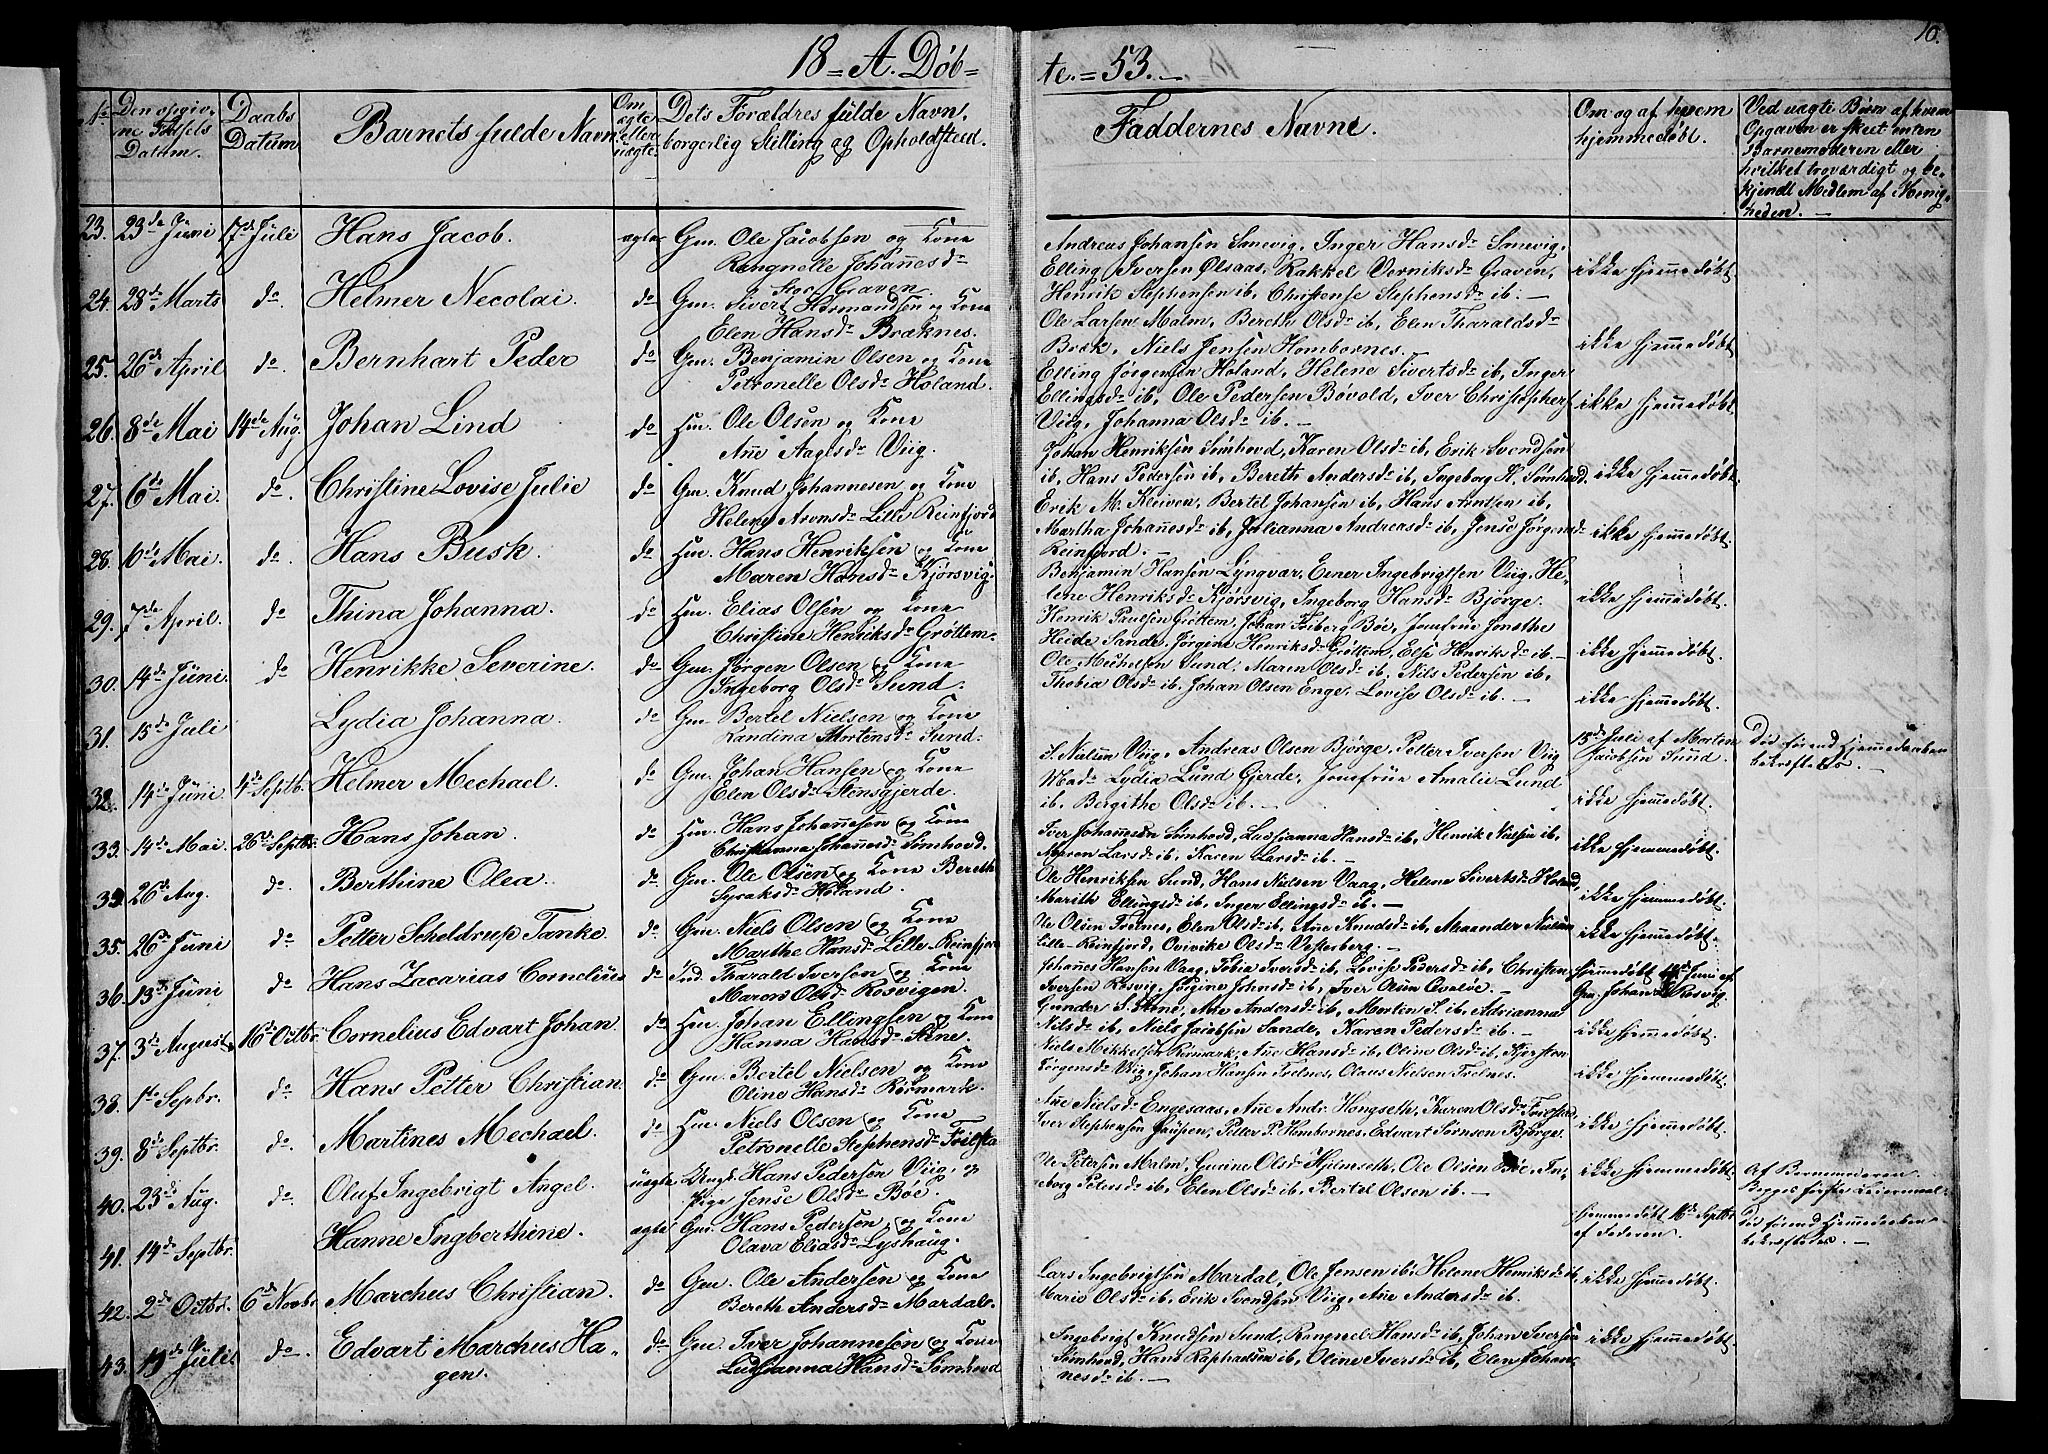 10.
18 = A. Døb=
te. = 53. —
No
Den opgiv,
ne Fødsels
Datum.
Daabs
Datum
Barnets fulde Navn
Om
ægte
eller
uægte
Dets Forældres fulde Navn,
borgerlig Stilling og Opholdsted.
Faddernes Navne.
Om og af hvem
hjemmedøbt.
Ved uægte Børn af hvem
Opgaven er skeet enten
Barnemoderen eller
hvilket troværdigt og be-
kjendt Medlem af Menig-
heden. —
23. 23de Juni 17de Juli Hans Jacob. ægte Gm. Ole Jacobsen og Kone
Rangnelle Johannesdr
Graven
Andreas Johansen Smevig, Inger Hansdr Smevig,
Elling Iversen Olsaas, Rakkel Verniksdr Graven,
Henrik Stephensen ib, Christense Stephensdr ib. —
ikke hjemmedøbt
24. 28de Marts do. Helmer Necolai. do Gm. Sivert Hormandsen og Kone
Elen Hansdr Bræknes.
Ole Larsen Malm, Bereth Olsdr ib, Elen Tharaldsdr
Bræk, Niels Jensen Hombornes.
ikke hjemmedøbt
25. 26de April do. Bernhart Peder do Gm. Benjamin Olsen og Kone
Petronelle Olsdr Holand.
Elling Jørgensen Holand, Helene Sivertsdr ib, Inger
Ellingsdr ib, Ole Pedersen Bøvold, Iver Christophers
Viig, Johanna Olsdr ib. —
ikke hjemmedøbt
26. 8de Mai 14de Aug. Johan Lind do Hm. Ole Olsen og Kone
Ane Aagesdr Viig.
Johan Henriksen Sømhovd, Karen Olsdr ib, Erik Svendsen
ib, Hans Pedersen ib, Bereth Andersdr ib, Ingeborg H. Sømhovd.
ikke hjemmedøbt
27. 6de Mai do. Christine Lovise Julie do Gm. Knud Johannesen og Kone
Helene Aronsdr Lille Reinfjord
Erik M. Kleiven, Bertel Johansen ib, Hans Arntsen ib,
Martha Johanesdr ib, Julianna Andreasdr ib, Jense Jørgensdr
Reinfjord. —
ikke hjemmedøbt.
28. 6de Mai do. Hans Busk. do Hm. Hans Henriksen og Kone
Maren Hansdr Kjørsvig.
Benjamin Hansen Lyngvar, Ener Ingebrigtsen Viig, He-
lene Henriksdr Kjørsvig, Ingeborg Hansdr Bjørge.
ikke hjemmedøbt.
29. 7de April. do Thina Johanna. do Hm. Elias Olsen og Kone
Christine Henriksdr Grøttem.
Henrik Paulsen Gjøttem, Johan Friberg Bøe, Jomfrue Jonethe
Heide Sande, Jørgine Henriksdr Gjøttem, Else Henriksdr ib. —
ikke hjemmedøbt.
30. 14de Juni. do Henrikke Severine. do Gm. Jørgen Olsen og Kone
Ingeborg Olsdr Sund.
Ole Mechelsen Sund, Maren Olsdr ib, Nils Pedersen ib,
Thobia Olsdr ib, Johan Olsen Enge, Lovise Olsdr ib. —
ikke hjemmedøbt.
31. 15de Juli Lydia Johanna. do Gm. Bertel Nielsen og Kone
Randina Mortensdr Sund.
15de Juli af Morten
Jacobsen Sund.
Død førend Hjemmedaaben
bekræftedes. —
32. 14de Juni 4de Septbr. Helmer Mechael. do Gm. Johan Hansen og Kone
Elen Olsdr Stensgjerde.
S. Nielsen Viig, Andreas Olsen Bjørge, Petter Iversen Viig
Madr Lydia Lund Gjerde, Jomfrue Amalie Lund
ib, Bergithe Olsdr ib. —
ikke hjemmedøbt.
33. 14de Mai. 26de Septbr. Hans Johan. do Hm. Hans Johannesen og Kone
Christianna Johannesdr Sømhovd.
Iver Johannesen Sømhovd, Ludsianna Hansdr ib, Henrik Nielsen ib,
Maren Larsdr ib, Karen Larsdr ib. —
ikke hjemmedøbt.
34. 26de Aug. do. Berthine Olea. do Gm. Ole Olsen og Kone Bereth
Syraksdr Holand.
Ole Henriksen Sund, Hans Nielsen Vaag, Helene Sivertsdr Holand,
Marith Ellingsdr ib, Inger Ellingsdr ib. —
ikke hjemmedøbt.
35. 26de Juni do Petter Scheldrup Tanke. do Gm. Niels Olsen og Kone
Marthe Hansdr Lille-Reinfjord
Ole Olsen Trelnes, Elen Olsdr ib, Ane Knudsdr ib, Meander Nielsen
Lille-Reinfjord, Ovivike Olsdr Vesterberg. —
ikke hjemmedøbt.
36. 13de Juni do Hans Zacarias Cornelius do Ind. Tharald Iversen og Kone
Maren Olsdr Rosvigen.
Johannes Hansen Vaag, Tobia Iversdr ib, Lovise Pedersdr ib, Christen
Iversen Rosvig, Jørgine Johnsdr ib, Iver Olsen Qvaløe. —
hjemmedøbt 14de Juni af
Gm. Johan Rosvig.
37. 3de August 16de Octbr. Cornelius Edvart Johan do Hm. Johan Ellingsen og Kone
Hanna Hansdr Stene.
Gunder S. Stene, Ane Andersdr ib, Morten S. ib, Adrianna
Nilsdr ib, Niels Jacobsen Sande, Karen Pedersdr ib. —
ikke hjemmedøbt.
38. 1ste Sepbr. do. Hans Petter Christian. do Gm. Bertel Nielsen og Kone
Oline Hansdr Rørmark.
Niels Mikkelsen Rørmark, Ane Hansdr ib, Oline Olsdr ib, Kjersten
Jørgensdr Viig, Johan Hansen Trelnes, Olaus Nielsen Trelnes.
ikke hjemmedøbt.
39. 8de Septbr. do. Martines Mechael. do Hm. Niels Olsen og Kone
Petronelle Stephensdr Frelsta
Ane Nielsdr Engesaas, Ane Andr. Hongseth, Karen Olsdr Frelsta,
Iver Stephensen Jaupen, Petter P. Hombornes, Edvart Sørnsen Bjørge.
ikke hjemmedøbt.
40. 23de Aug. do. Oluf Ingebrigt Angel. uægte Ungk. Hans Pedersen Viig, og
Pige Jense Olsdr Bøe.
Ole Petersen Malm, Gurine Olsdr Hjelmseth, Ole Olsen Bøe, In-
geborg Petersdr ib, Elen Olsdr ib, Bertel Olsen ib. —
ikke hjemmedøbt.
Af Barnemoderen.
Begges første Leiermaal.
41. 14de Septbr. Hanne Ingberthine. ægte Gm. Hans Pedersen og Kone
Olava Eliasdr Lyshaug.
hjemmedøbt 16de Septbr.
af Faderen.
Død førend Hjemmedaaben
bekræftedes. —
42. 2de Octbr. 6de Novbr. Marchus Christian. do Gm. Ole Andersen og Kone
Bereth Andersdr Mardal.
Lars Ingebrigtsen Mardal, Ole Jensen ib, Helene Henriksdr ib,
Marie Olsdr ib, Erik Svendsen Viig, Ane Andersdr ib.
ikke hjemmedøbt.
43. 19de Juli do. Edvart Marchus Ha-
gen.
do Gm. Iver Johannesen og Kone
Ludsianna Hansdr Sømhovd
Ingebrigt Knudsen Sund, Rangnel Hansdr ib, Johan Iversen
Sømhovd, Hans Raphaelsen ib, Oline Iversdr ib, Elen Johan-
nesdr ib. —
ikke hjemmedøbt.